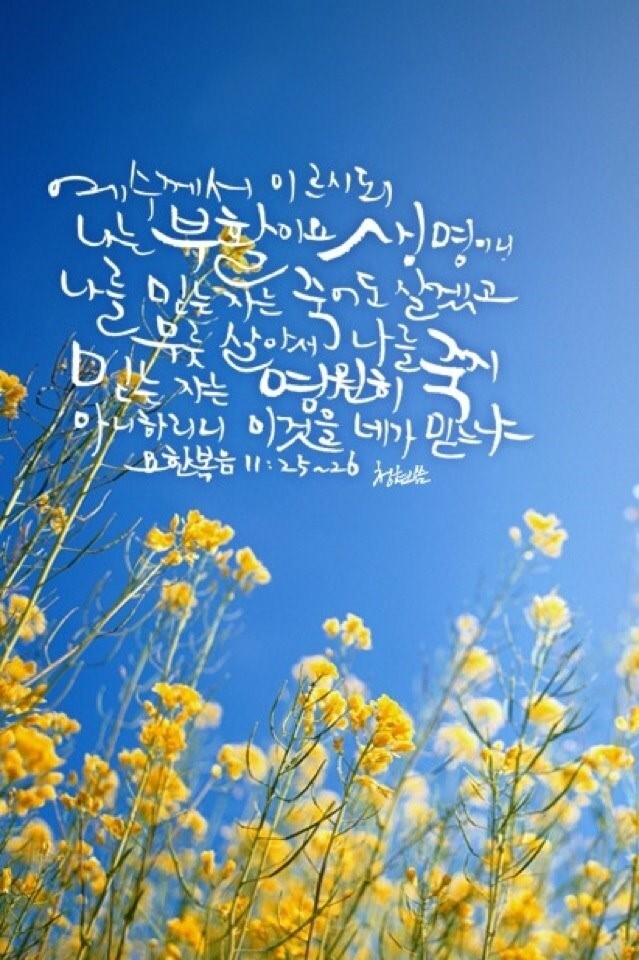 예수께서 이르시되
나는 부활이요 생명이니
나를 믿는 자는 죽어도 살겠고
무릇 살아서 나를
믿는 자는 영원히 죽지
아니하리니 이것을 네가 믿느냐
요한복음 11:25~26